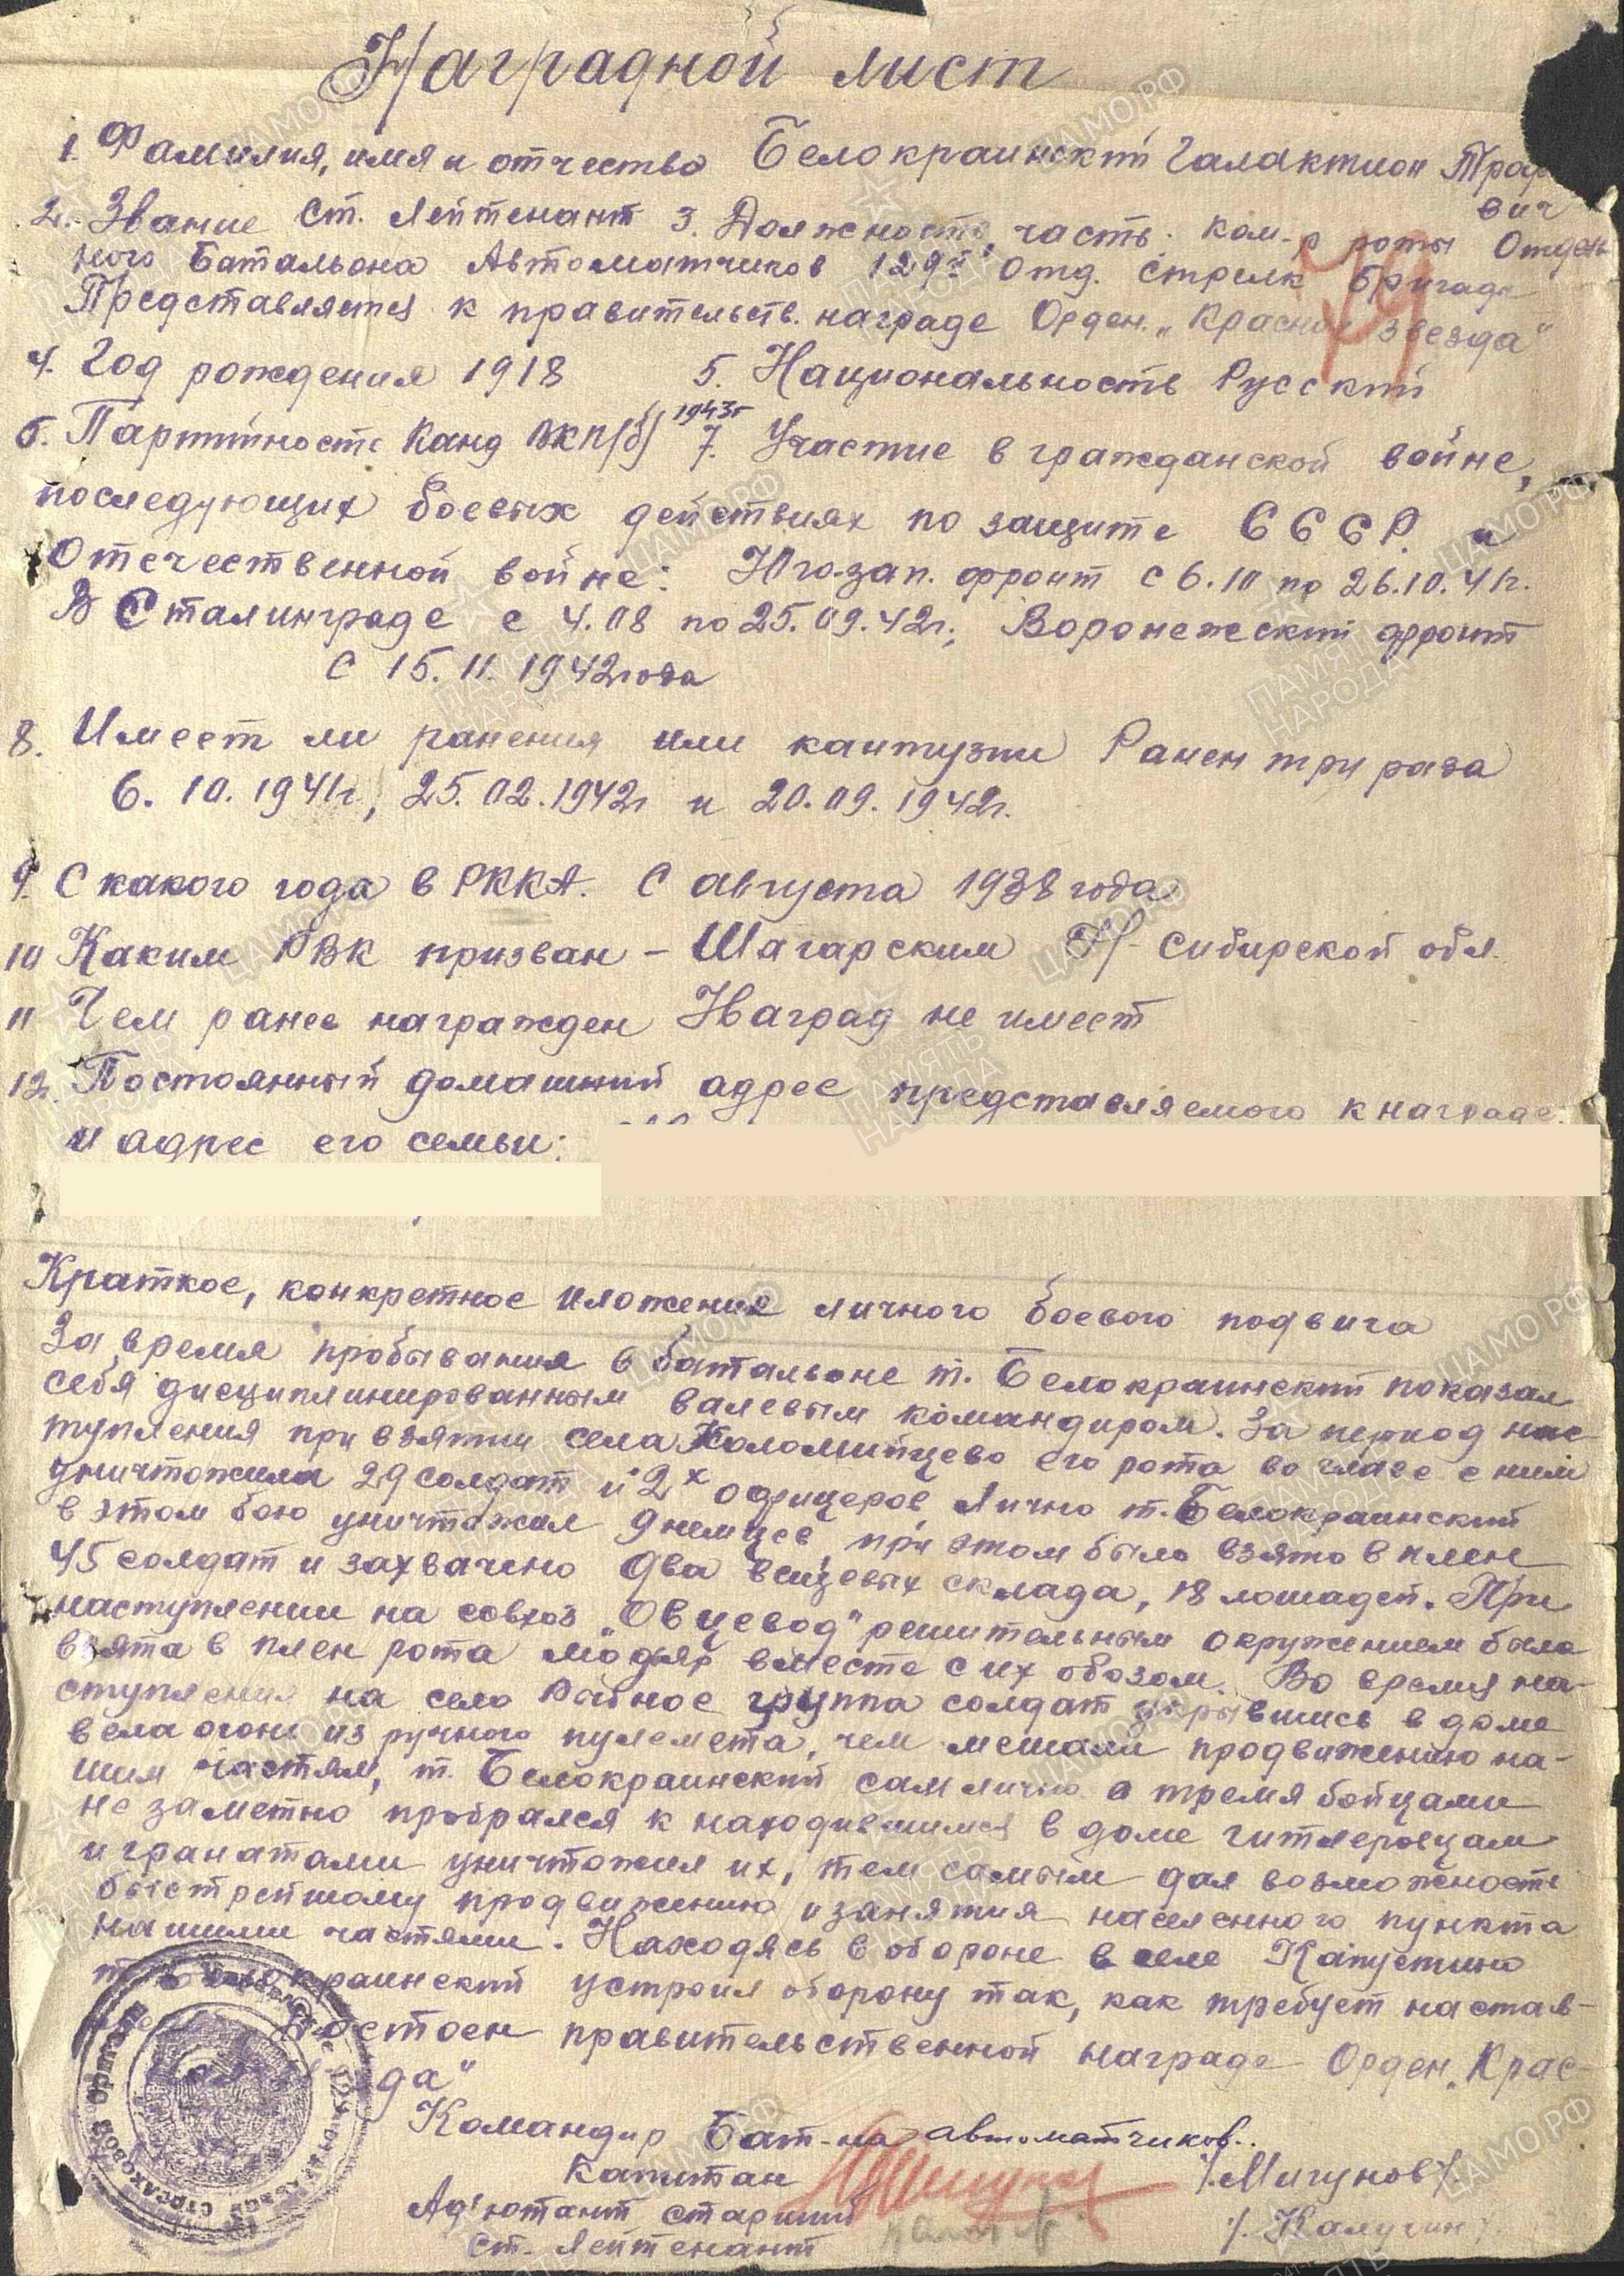 Наградной лист
1. Фамилия, имя и отчество Белокраинский Галактион Троф
вич
2. Звание Ст. Лейтенант 3. Должность, часть. Ком-р роты Отдель
ного Батальона Автоматчиков 129й Отд. Стрелк Бригады
Представляется к правительств. награде Орден „Красная Звезда"
4. Год рождения 1918 5. Национальность Русский
6. Партийность Канд ВКП(б) 1943г 7. Участие в гражданской войне,
последующих боевых действиях по защите СССР и
Отечественной войне: Юго-зап. фронт с 6.10 по 26.10.41г.
В Сталинграде с 4.08 по 25.09.42г.; Воронежский фронт
с 15.11.1942года
8. Имеет ли ранения или кантузии Ранен три раза
6.10.1941г, 25.02.1942г и 20.09.1942г.
9. С какого года в РККА. С августа 1938 года
10 Каким РВК призван – Шагарским Н-сибирской обл.
11 Чем ранее награжден Наград не имеет
12. Постоянный домашний адрес представляемого к награде
и адрес его семьи:
Краткое, конкретное иложения личного боевого подвига
За время пробывания в батальоне т. Белокраинский показал
себя дисциплинированным валевым командиром. За период нас-
тупления при взятии села Коломийцево его рота во главе с ним
уничтожила 29 солдат и 2х офицеров, Лично т. Белокраинский
в этом бою уничтожил 9 немцев, при этом было взято в плен
45 солдат и захвачено два вещевых склада, 18 лошадей. При
наступлении на совхоз „Овцевод" решительным окружением была
взята в плен рота модьяр вместе с их обозом. Во время на-
ступления на село группа солдат укрывшись в доме
вела огонь из ручного пулемета, чем мешали продвижению на-
шим частям, т. Белокраинский сам лично с тремя бойцами
не заметно пробрался к находившимся в доме гитлеровцам
и гранатами уничтожил их, тем самым дал возможность
быстрейшому продвижению и занятия населенного пункта
нашими частями. Находясь в обороне в селе Капустино
т. Белокраинский устроил оборону так, как требует настав-
Достоен правительственной награде Орден „Крас-
да"
Командир Бат-на автоматчиков.
Капитан /.Мигунов/.
Ад'ютант старший
Ст. Лейтенант /. Калугин /.